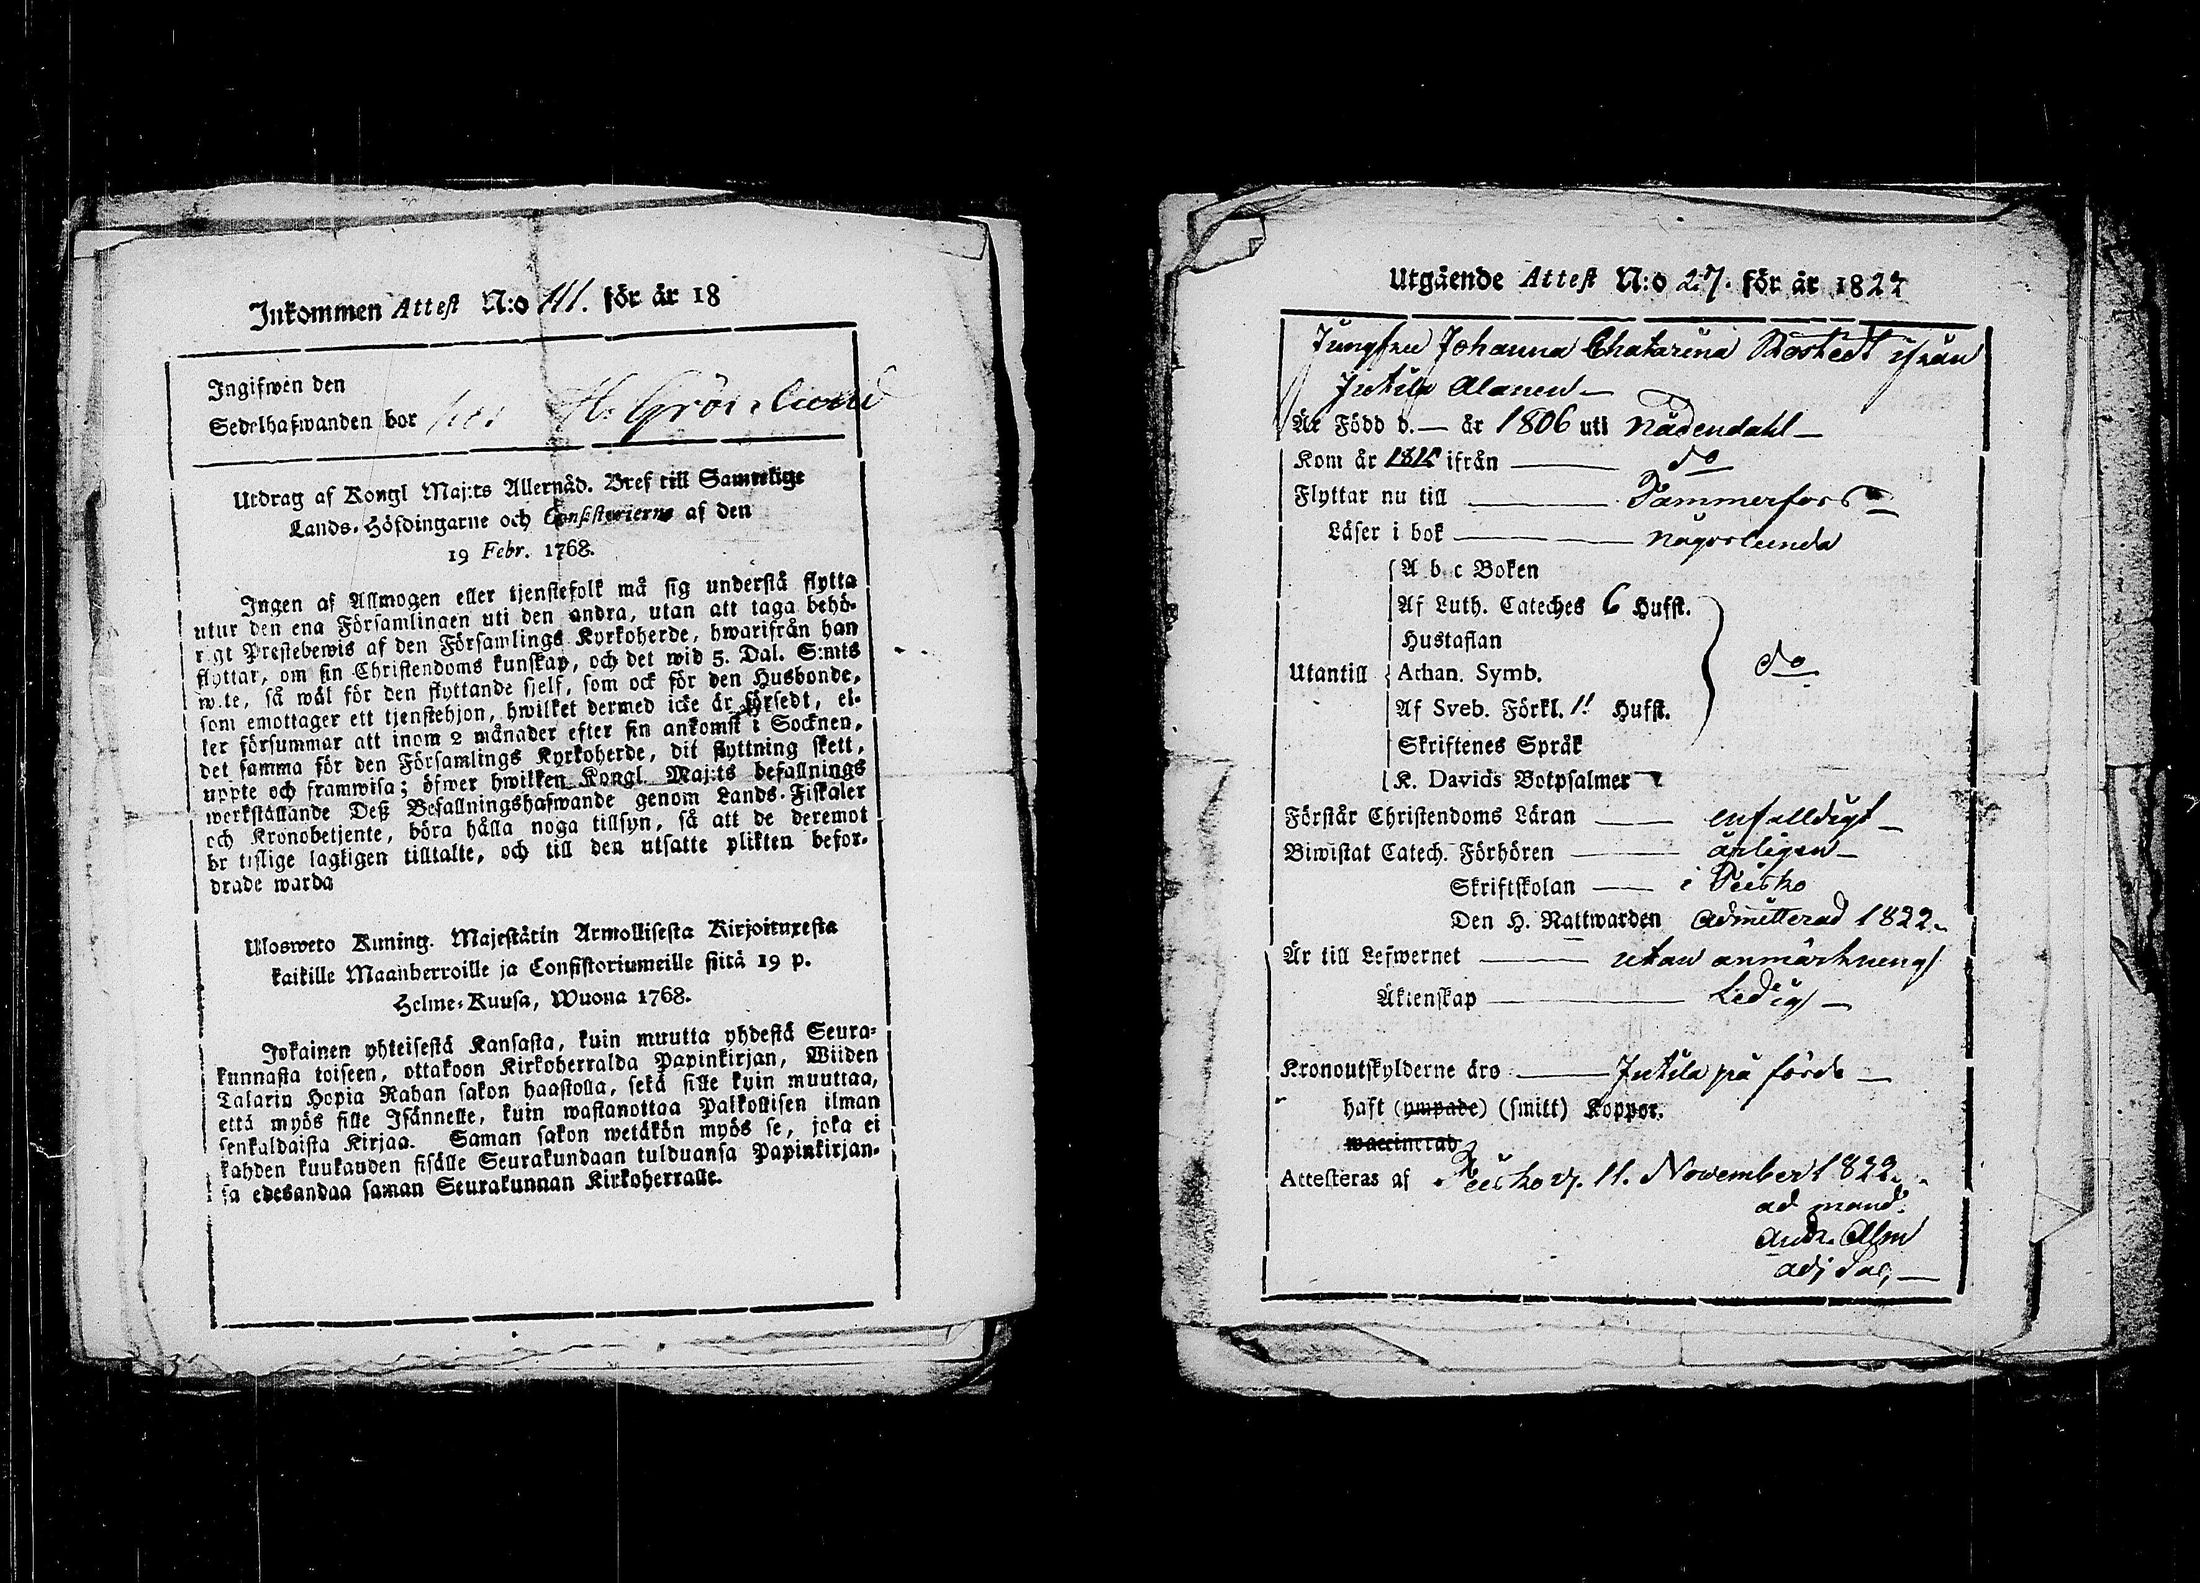 Inkommen Attest N:o 111. för år 18
Ingifwen den
Sedelhafwanden bor hos H. Grönlund
Utdrag af Kongl Maj:ts Allernåd. Bref till Samtelige
Lands-Höfdingarne och Consistorierne af den
19 Febr. 1768.
Ingen af Allmogen eller tjenstefolk må sig understå flytta
utur den ena Församlingen uti den andra, utan att taga behö-
r gt Prestebewis af den Församlings Kyrkoherde, hwarifrån han
flyttar, om sin Christendoms kunskap, och det wid 5. Dal. S:mts
w.te, så wäl för den flyttande sjelf, som ock för den Husbonde,
som emottager ett tjenstehjon, hwilket dermed icke är försedt, el-
ler försummar att inom 2 månader efter sin ankomst i Socknen,
det samma för den Församlings Kyrkoherde, dit flyttning skett,
uppte och framwisa; öfwer hwilken Kongl. Maj:ts befallnings
werkställande Deß Befallningshafwande genom Lands-Fiskaler
och Kronobetjente, böra hålla noga tillsyn, så att de deremot
br tslige lagligen tilltalte, och till den utsatte plikten befor-
drade warda
Ulosweto Kuning. Majestätin Armollisesta Kirjoituxesta
kaikille Maanherroille ja Consistoriumeille siitä 19 p.
Helme-Kuusa, Wuona 1768.
Jokainen yhteisestä Kansasta, kuin muutta yhdestä Seura-
kunnasta toiseen, ottakoon Kirkoherralda Papinkirjan, Wiiden
Talarin Hopia Rahan sakon haastolla, sekä sille kuin muuttaa,
että myös sille Isännelle, kuin wastanottaa Palkollisen ilman
senkaldaista Kirjaa. Saman sakon wetäkön myös se, joka ei
kahden kuukauden sisälle Seurakundaan tulduansa Papinkirjan-
sa edesandaa saman Seurakunnan Kirkoherralle.
Utgående Attest N:o 27. för år 1822
Jungfru Johanna Chatarina Rostedt ifrån
Jutila Alanen —
Är Född d. — år 1806 uti Nådendahl —
Kom år 1815 ifrån — do
Flyttar nu till — Tammerfors —
Läser i bok — någorlunda
A b c Boken
Af Luth. Cateches 6 Hufst.
Hustaflan
Utantill Athan. Symb. do
Af Sveb. Förkl. 11 Hufst.
Skriftenes Språk
K. Davids Botpsalmer
Förstår Christendoms Läran — enfalldigt —
Biwistat Catech. Förhören — årligen —
Skriftskolan — i Teisko
Den H. Nattwarden admitterad 1822.
Är till Lefwernet — utan anmärkning
Äktenskap — Ledig —
Kronoutskylderne äro — Jutila påförde —
haft (ympade) (smitt) Koppor.
waccinerad
Attesteras af Teisko d. 11. November 1822.
ad mand.
And. Alm
adj Sac, —